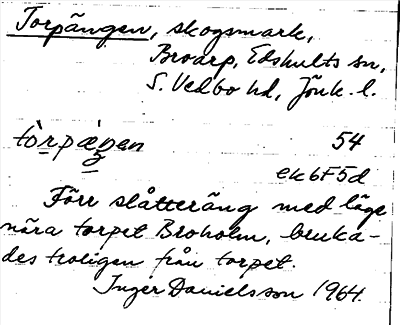 Torpängen, skogsmark,
Broarp, Edshults sn,
S. Vedbo hd, Jönk. l.
tòrpæ̀ŋen 54
ek 6F5d
Förr slåtteräng med läge
nära torpet Broholm, bruka-
des troligen från torpet.
Inger Danielsson 1964.